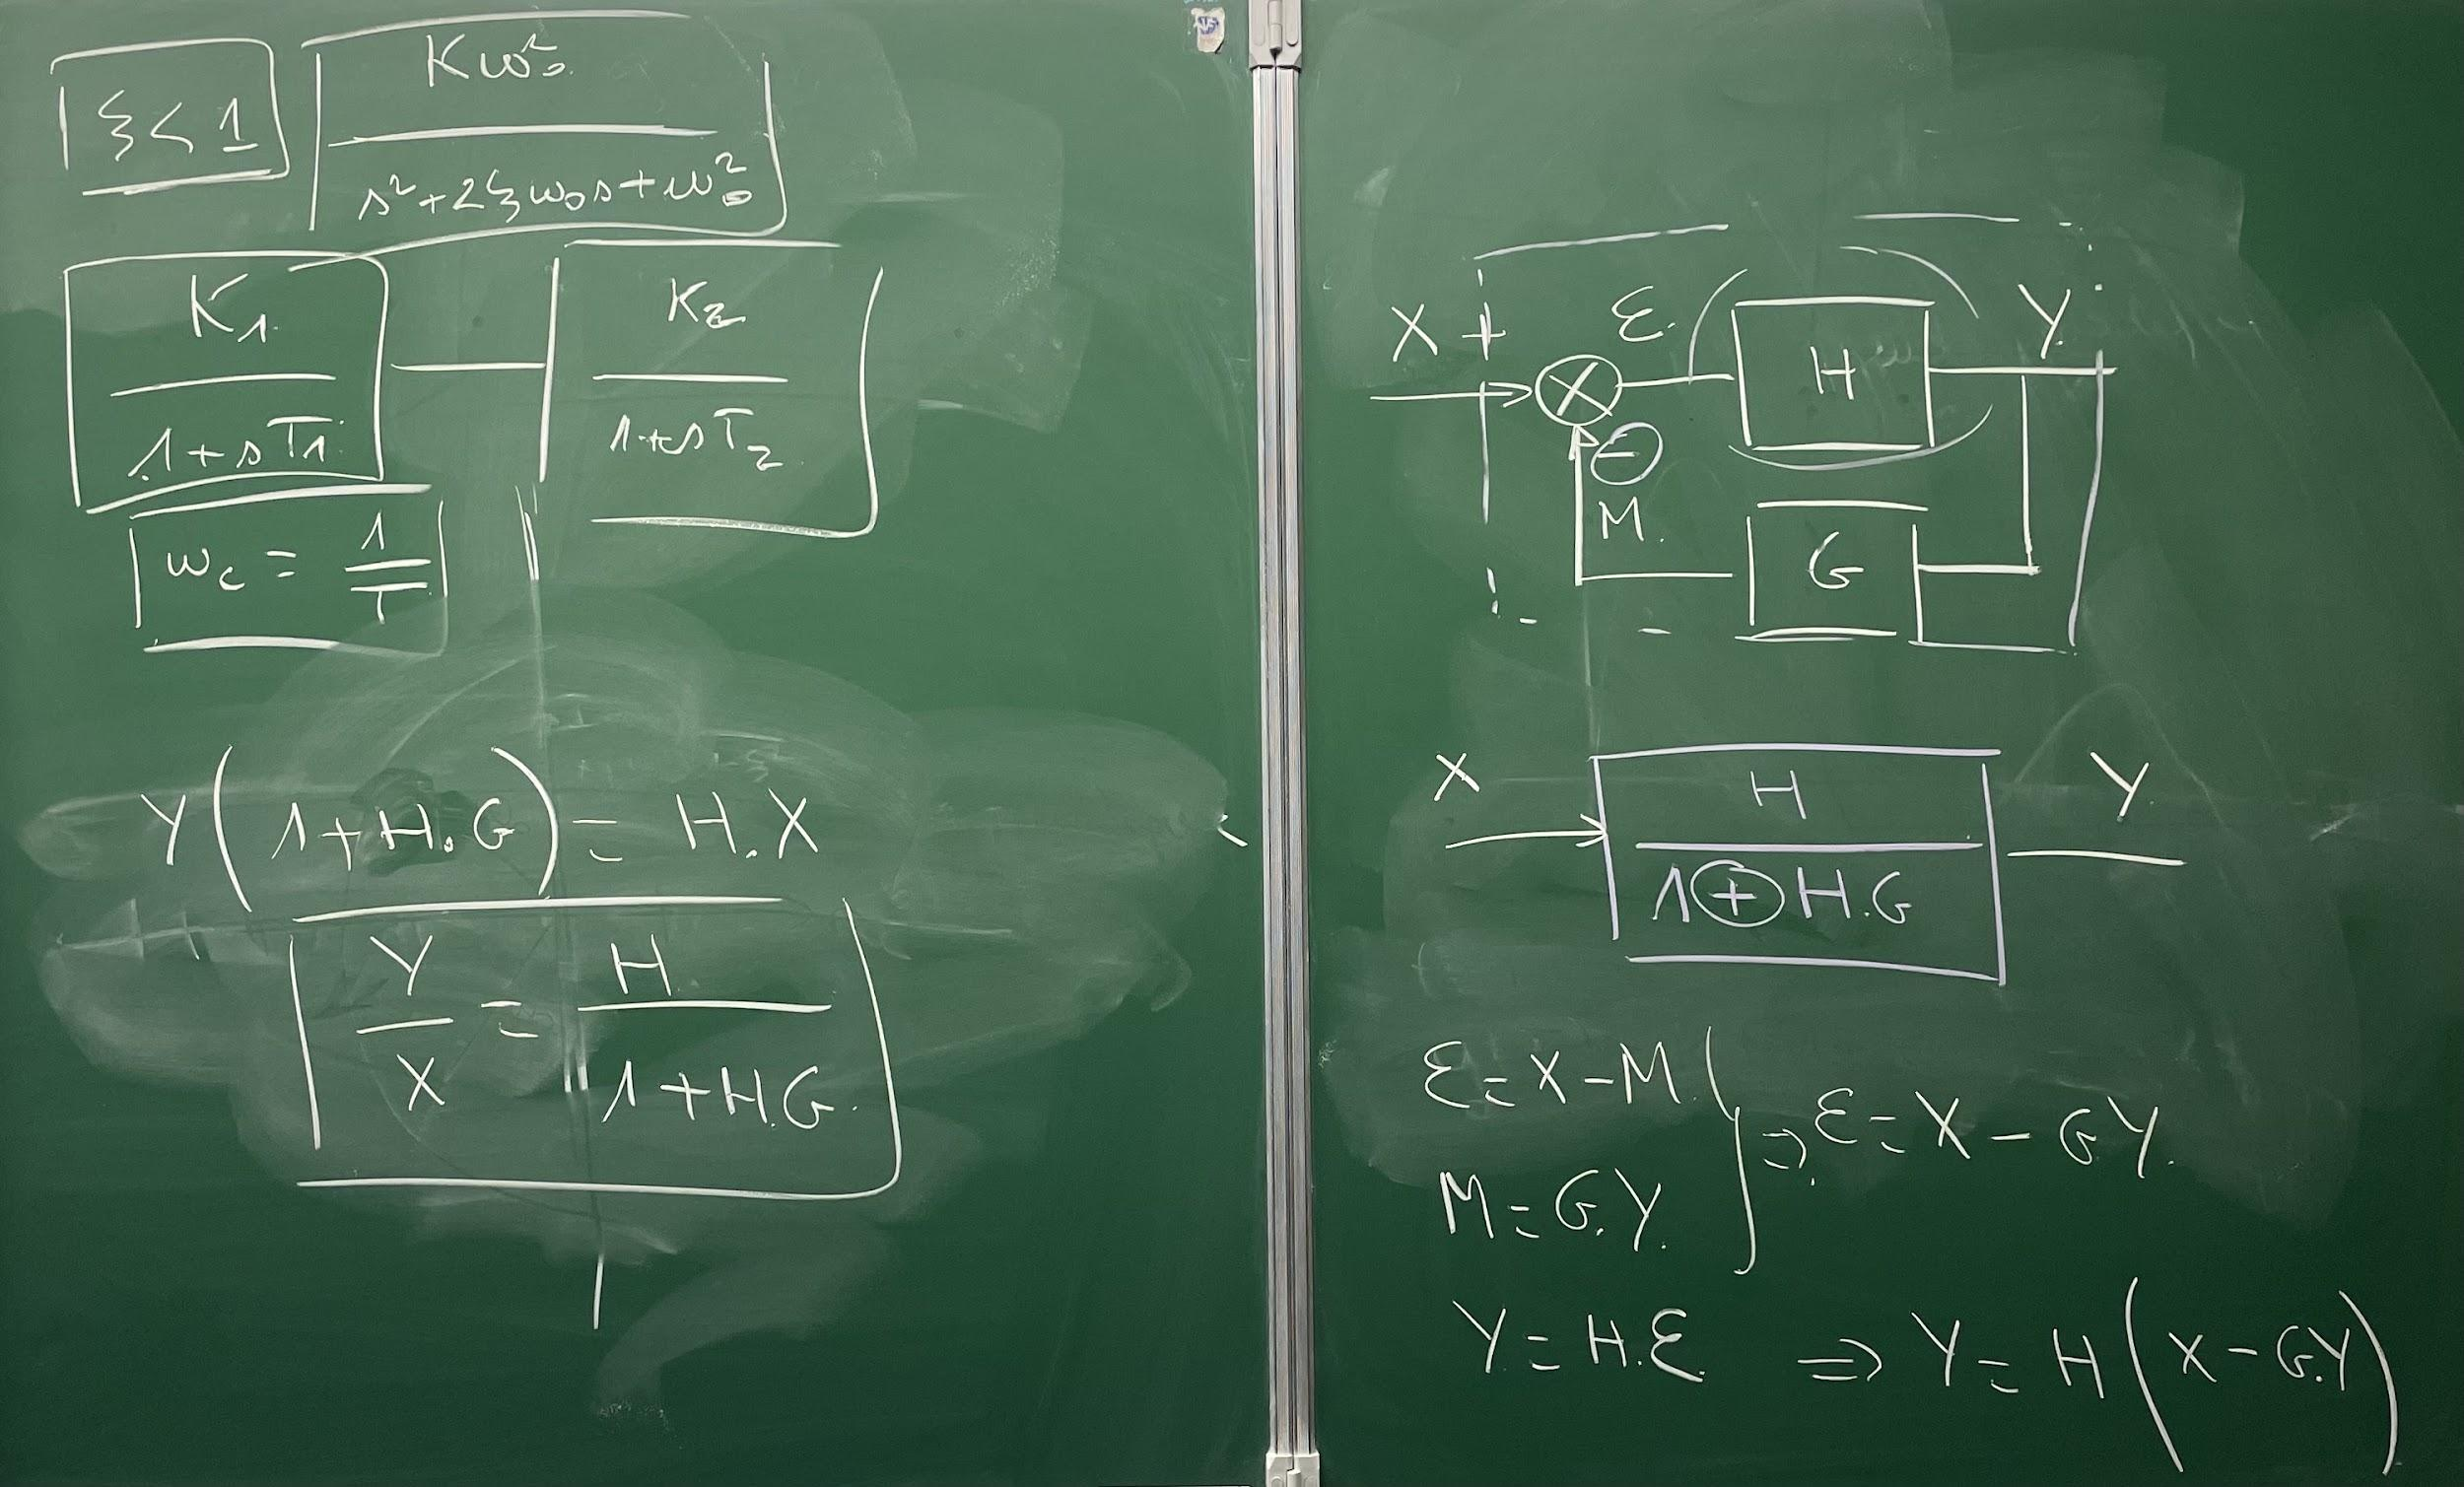 ξ < 1
Kω₀²
s² + 2ξω₀s + ω₀²
K₁
1 + sT₁
K₂
1 + sT₂
ω_c = 1/T
Y(1 + H.G) = H.X
Y/X = H/(1 + H.G)
X + ε Y
H
−
M
G
X Y
H
1 + H.G
ε = X − M
⇒ ε = X − GY
M = G.Y
Y = H.ε ⇒ Y = H(X − G.Y)